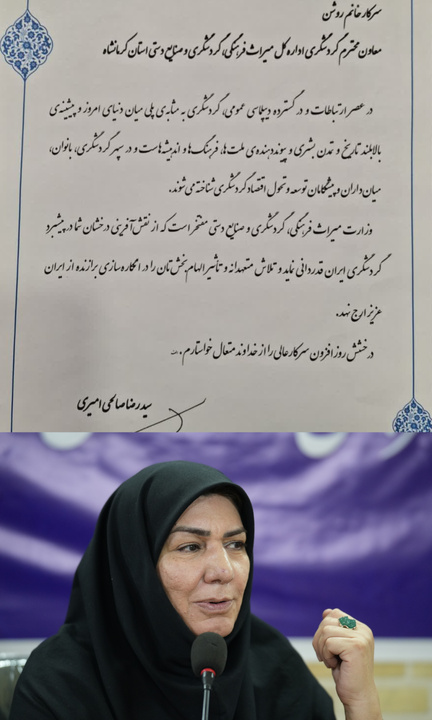 سرکار خانم روشن
معاون محترم گردشگری اداره کل میراث فرهنگی، گردشگری و صنایع دستی استان کرمانشاه
در عصر ارتباطات و در گستره دیپلماسی عمومی، گردشگری به مثابه‌ی پلی میان دنیای امروز و پیشینه‌ی
بالابلند تاریخ و تمدن بشری و پیوند دهنده‌ی ملت‌ها، فرهنگ‌ها و اندیشه‌هاست و در سپهر گردشگری، بانوان،
میان‌داران و پیشگامان توسعه و تحول اقتصاد گردشگری شناخته می‌شوند.
وزارت میراث فرهنگی، گردشگری و صنایع دستی مفتخر است که از نقش آفرینی درخشان شما در پیشبرد
گردشگری ایران قدردانی نماید و تلاش متعهدانه و تأثیر الهام بخش‌تان را در انگاره‌سازی برازنده از ایران
عزیز ارج نهد.
درخشش روزافزون سرکارعالی را از خداوند متعال خواستارم.
سید رضا صالحی امیری